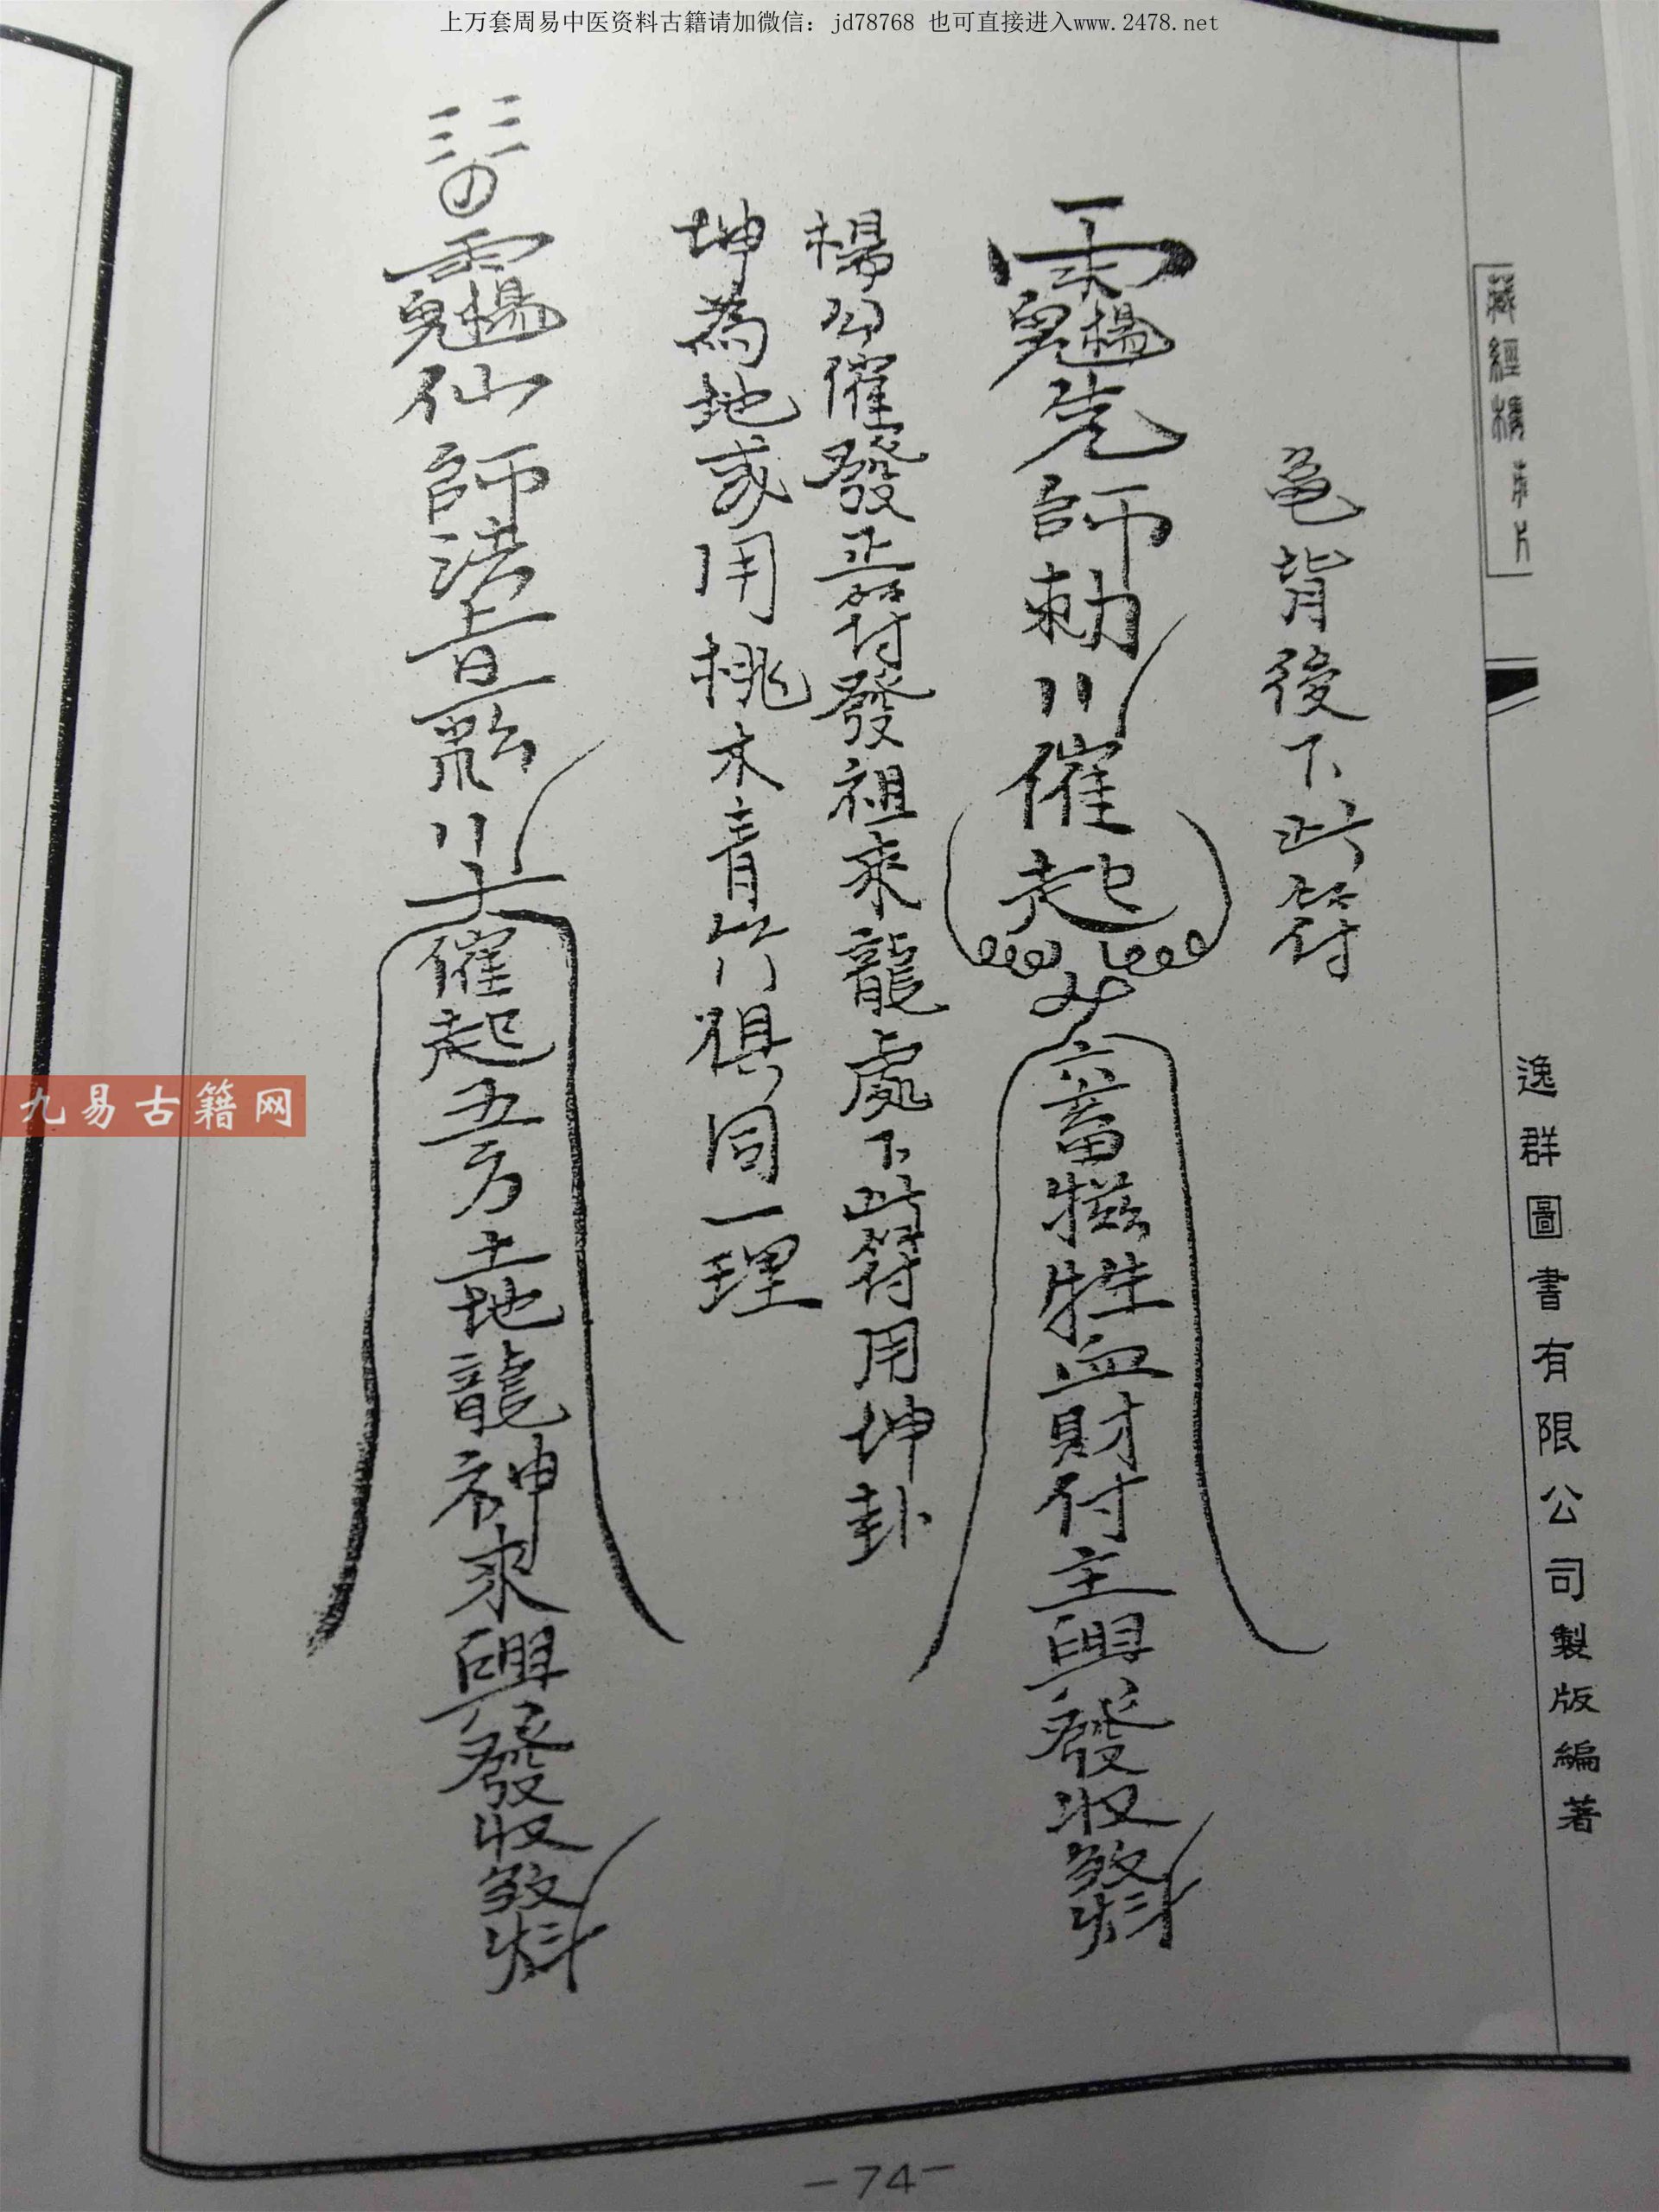 上万套周易中医资料古籍请加微信：jd78768 也可直接进入www.2478.net
藏經精
逸群圖書有限公司製版編著
龟背後下此符
先師勅催起六畜牲血財付主興發收
楊公催發正符發祖來龍處下此符用坤卦
坤為地或用桃木青竹俱同一理
仙師法旨催起五方土地龍神來興發收
九易古籍网
-74-